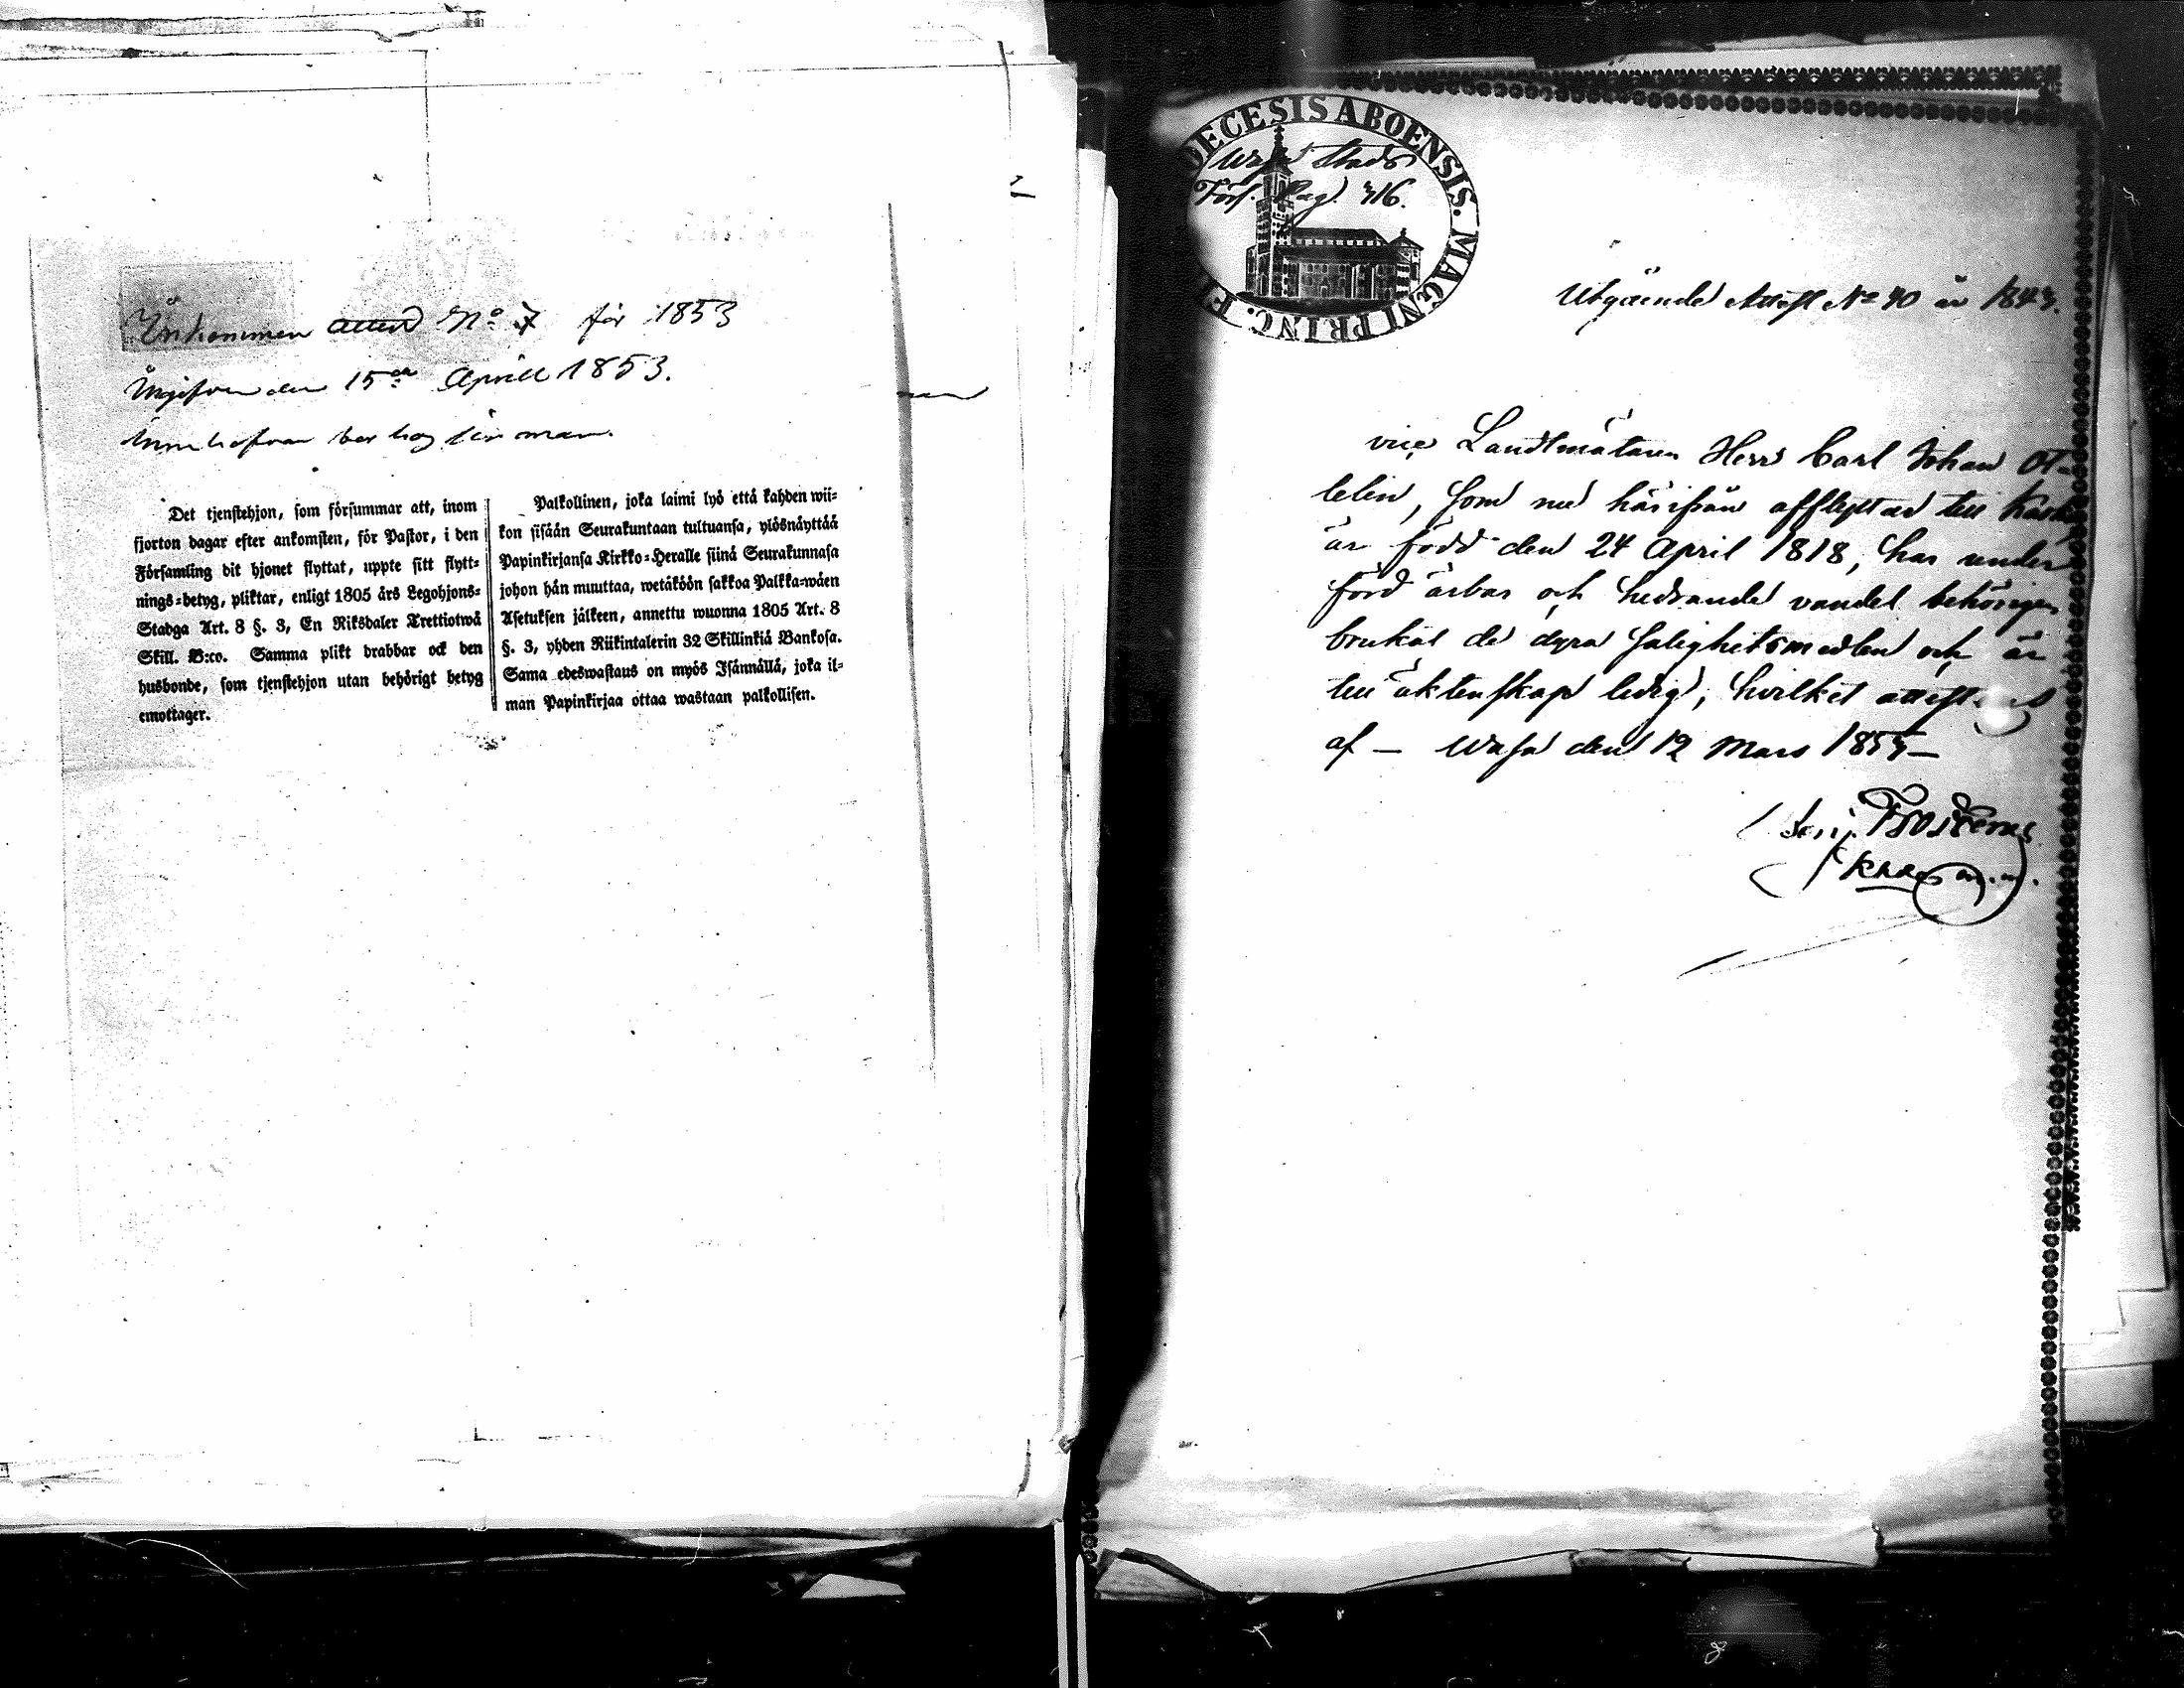 Inkommen attest No 7 för 1853
Ingifven den 15de April 1853.
Innehafvaren bor hos sin man.
Det tjenstehjon, som försummar att, inom
fjorton dagar efter ankomsten, för Pastor, i den
Församling dit hjonet flyttat, uppte sitt flytt-
nings-betyg, pliktar, enligt 1805 års Legohjons-
Stadga Art. 8 §. 3, En Riksdaler Trettiotwå
Skill. B:co. Samma plikt drabbar ock den
husbonde, som tjenstehjon utan behörigt betyg
emottager.
Palkollinen, joka laimi lyö että kahden wii-
kon sisään Seurakuntaan tultuansa, ylösnäyttää
Papinkirjansa Kirkko-Heralle siinä Seurakunnasa
johon hän muuttaa, wetäköön sakkoa Palkka-wäen
Asetuksen jälkeen, annettu wuonna 1805 Art. 8
§. 3, yhden Riikintalerin 32 Skillinkiä Bankosa.
Sama edeswastaus on myös Isännällä, joka il-
man Papinkirjaa ottaa wastaan palkollisen.
DECESIS ABOENSIS. MAGNI PRINC. F
Wasa Stads
Förs. Pag. 316.
Utgående Attest No 40 år 1843.
vice Landtmätaren Herr Carl Johan Ot-
lelin, som nu härifrån afflyttar till Kask
är född den 24 April 1818, har under
förd ärbar och hedrande vandel behörigen
brukat de dyra salighetsmedlen och är
till äktenskap ledig, hvilket attesteras
af — Wasa den 12 Mars 1853 —
Benj. Frosterus
Khde m.m.